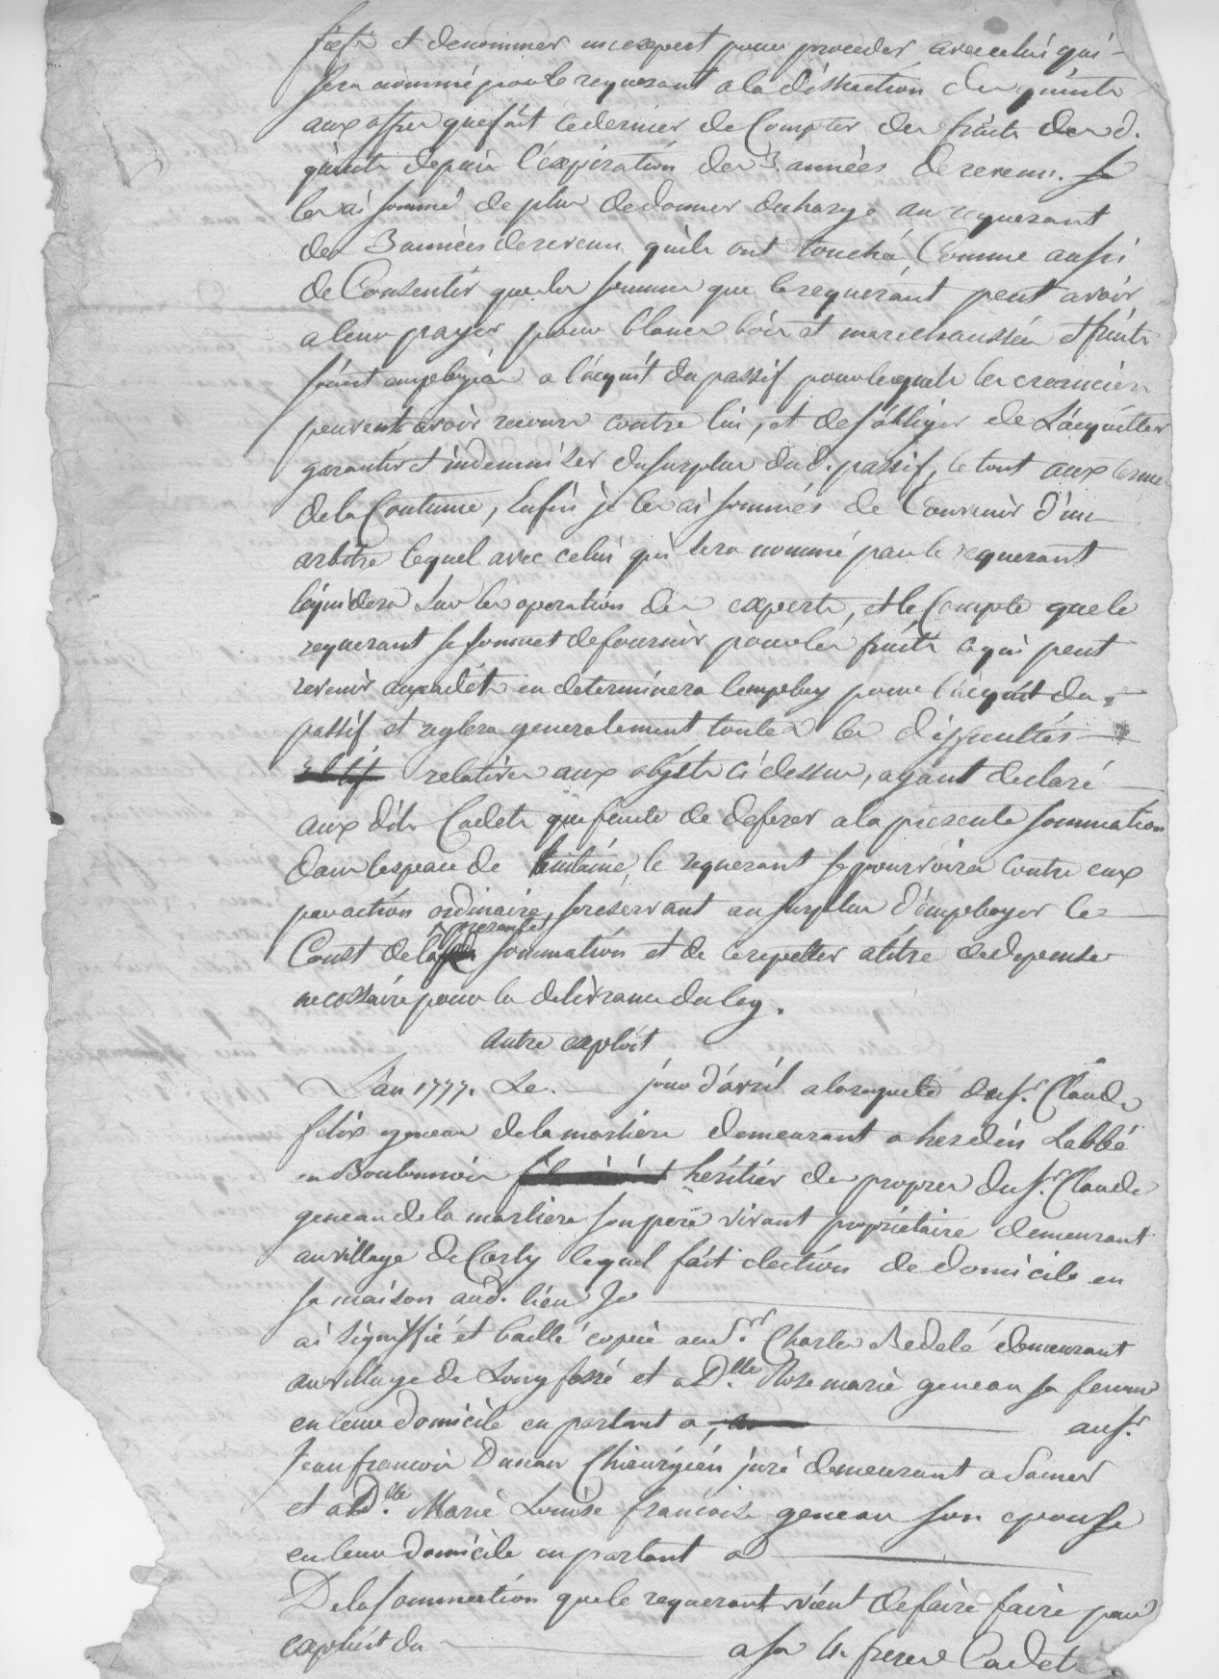 fiefs et denommer un expert pour proceder avec celui qui
sera nommé par le requerant a la distraction des quints
aux offres que fait ce dernier de Compter des fruits des d.
quints depuis l'expiration des 3. années de revenu. Je
les ai sommé de plus de donner decharge au requerant
des 3 années de revenu qu'ils ont touché, Comme aussi
de Consentir que les sommes que le requerant peut avoir
a leur payer pour blancs bois et marechaussées et fruits
soient employées a l'acquit du passif pour lequels les creanciers
peuvent avoir recours contre lui, et de s'obliger de L'acquitter
garantir et indemniser du surplus dud. passif, le tout aux termes
de la Coutume, Enfin je les ai sommés de Convenir d'un
arbitre lequel avec celui qui sera nommé par le requerant
liquidera sur les operations des experts, et le Compte que le
requerant se soumet de fournir pour les fruits ce qui peut
revenir auxdits en determinera l'employ pour l'acquit du
passif et reglera generalement toutes les difficultés
relatives aux objets ci dessus, ayant declaré
aux dits Cadets que faute de deferer a la presente sommation
dans l'espace de huitaine, le requerant se pourvoira contre eux
par action ordinaire, se reservant au surplus d'employer le
Coust de la presente sommation et de le repeter a titre de depense
necessaire pour la delivrance du leg.
Autre exploit
L'an 1777. Le. jour d'avril a la requete du Sr. Claude
felix geneau de la marliere demeurant a hesdin Labbé
en Boulonnois heritier des propres du Sr. Claude
geneau de la marliere son pere vivant propriétaire demeurant
au village de Carly lequel fait election de domicile en
sa maison aud. lieu Je
ai signiffié et baillé copie au Sr. Charles Bedelé demeurant
au village de Longfossé et a Dlle. Rose marie geneau sa femme
en leur domicile en parlant a au Sr.
Jean francois Chirurgien juré demeurant a Samer
et a Dlle. Marie Louise francoise geneau son epouse
en leur domicile en parlant a
De la sommation que le requerant vient de faire faire par
exploit du a ses 4. freres Cadets